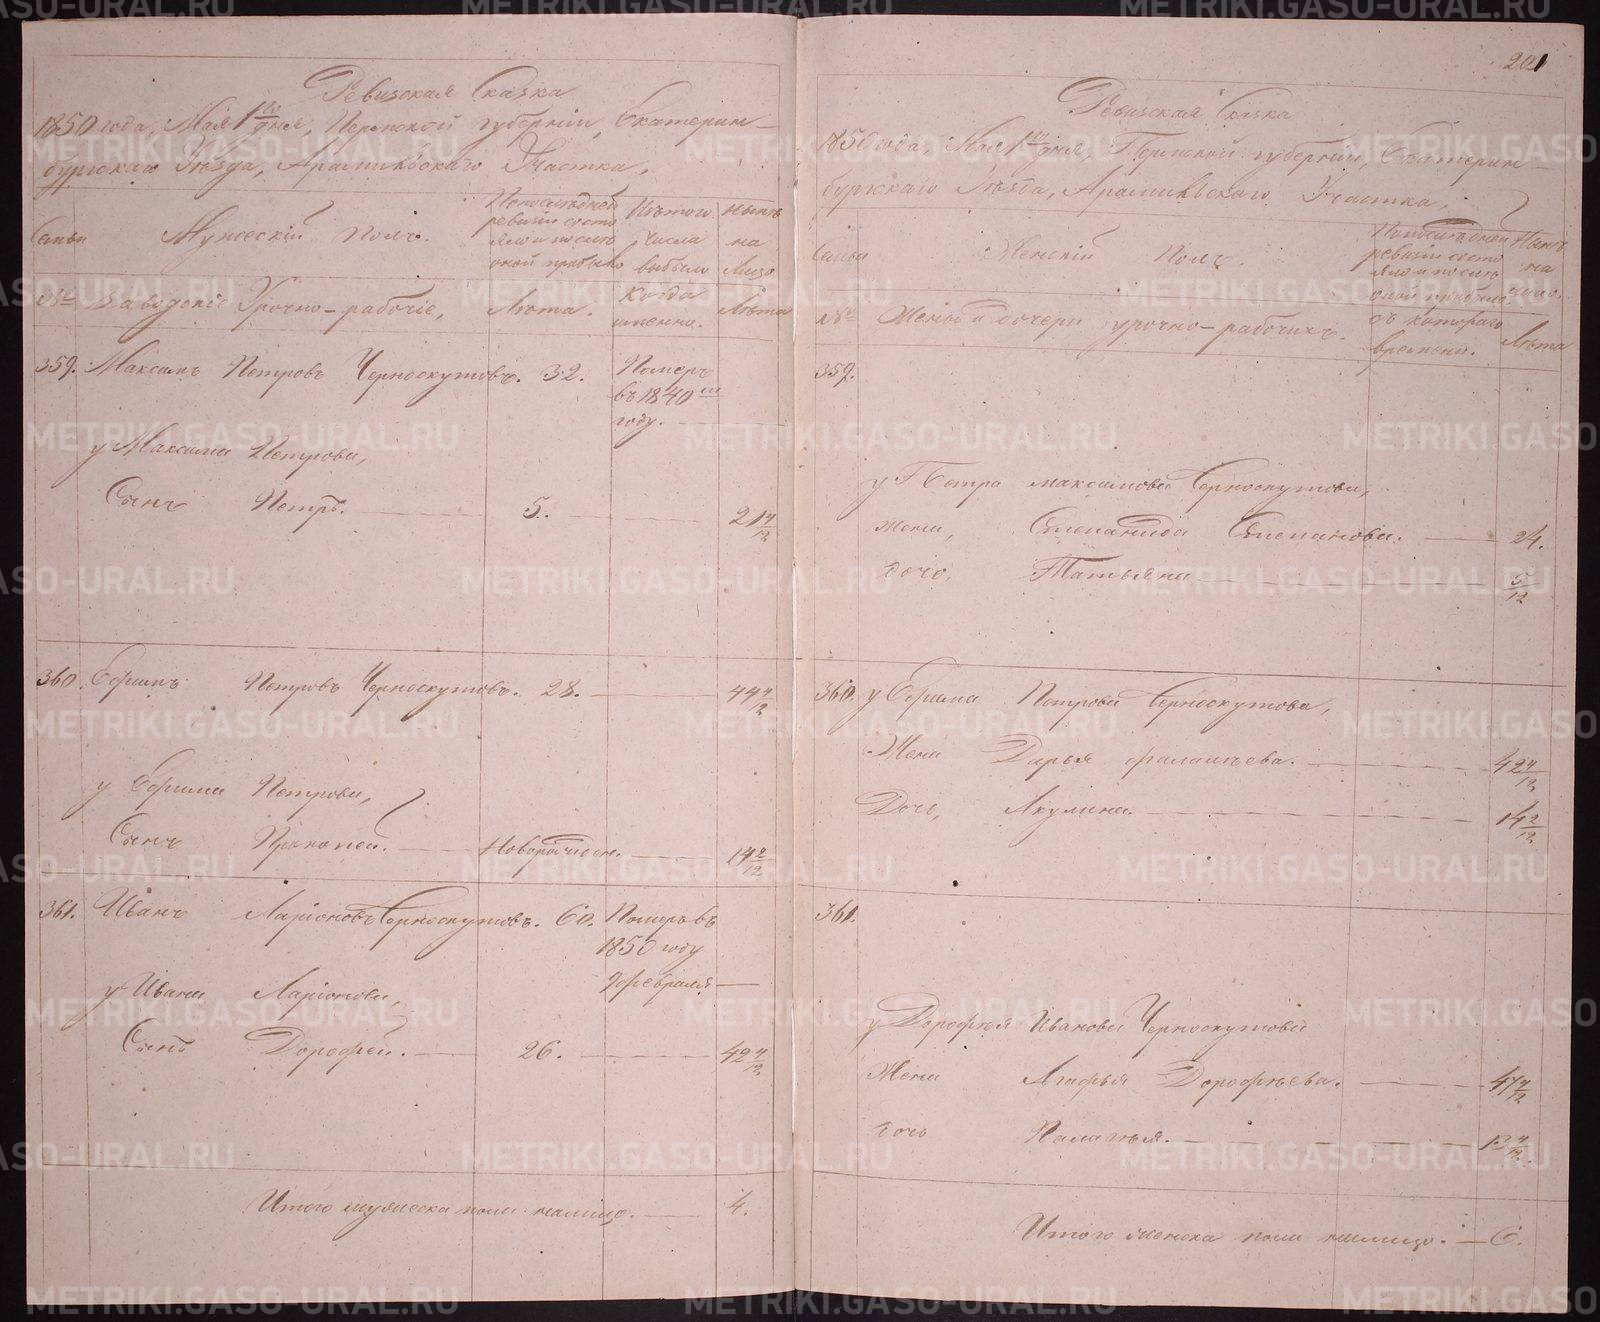 Ревизская Сказка
1850 года, Мая 1го дня, Пермской губернiи, Екатерин-
бургскаго Уѣзда, Арамильскаго Участка,
Семьи
Мужескiй полъ.
По последней ревизiи состо яло и после оной прибыло
Изъ того числа выбыло
Нынѣ на лицо
№
Заводскiе Урочно-рабочiе,
Лѣта.
Когда именно.
Лѣта
359. Максимъ Петровъ Черноскутовъ. 32. Померъ
въ 1840м
году.
у Максима Петрова,
Сынъ Петръ. 5. 21 4/12
360. Ефимъ Петровъ Черноскутовъ. 28. 44 4/12
у Ефима Петрова,
Сынъ Прокопей. Новорожден. 14 2/12
361. Иванъ Ларiоновъ Черноскутовъ. 60. Померъ въ
1850 году
февраля
у Ивана Ларiонова,
Сынъ Дорофей. 26. 42 4/12
Итого мужеска пола налицо. 4.
201
Ревизская Сказка
1850 года, Мая 1го дня, Пермской губернiи, Екатерин-
бургскаго Уѣзда, Арамильскаго Участка,
Семьи
Женскiй Полъ.
По последней ревизiи состо яло и после оной прибыло
Нынѣ на лицо.
№
Жены и дочери урочно-рабочихъ.
съ котораго времени.
Лѣта
359.
у Петра Максимова Черноскутова,
жена, Степанида Степанова. 24.
дочь, Татьяна 5/12
360. у Ефима Петрова Черноскутова,
Жена Дарья Фалалѣева. 42 4/12
Дочь, Акулина. 14 2/12
361.
у Дорофѣя Иванова Черноскутова
Жена Агафья Дорофѣева. 47 4/12
дочь Палагья. 13 4/12
Итого женска пола налицо. 6.
METRIKI.GASO-URAL.RU